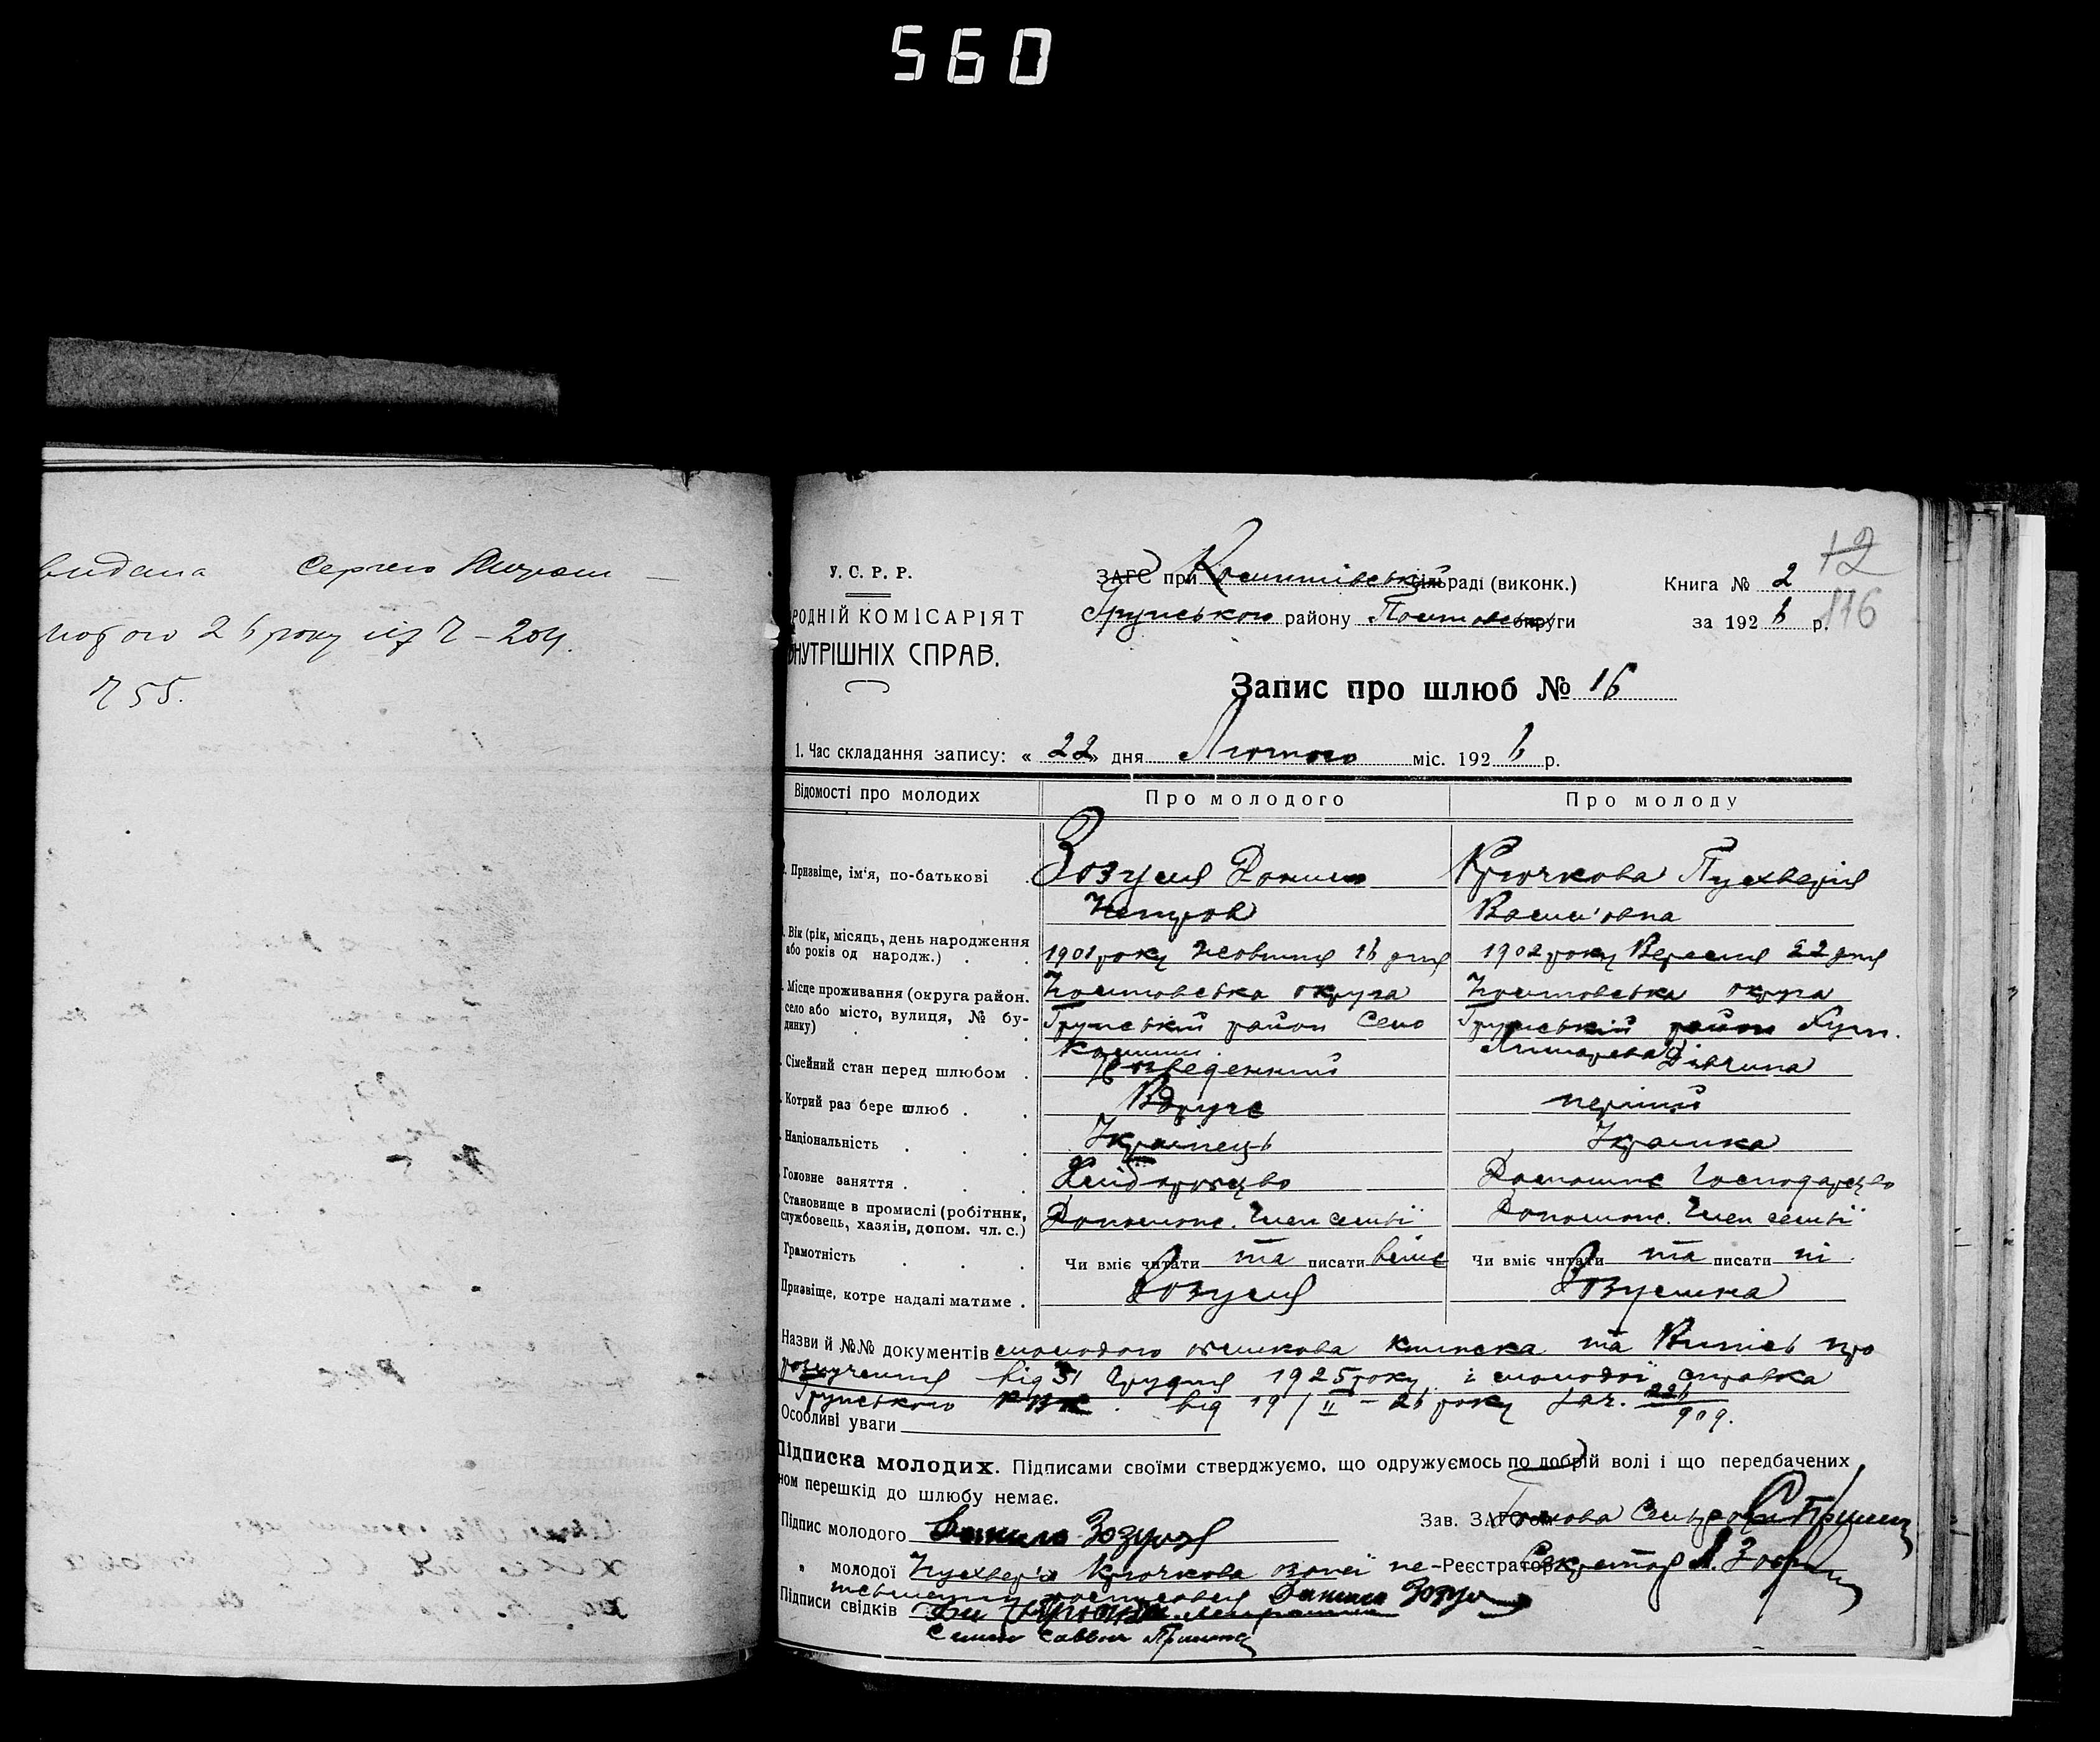 560
видана Сергію
лютого 26 року № 204.
№ 55.
12
116
У. С. Р. Р.
РОДНІЙ КОМІСАРІЯТ
ВНУТРІШНІХ СПРАВ.
ЗАГС при сільраді (виконк.)
Грунського району Полтавськ округи
Книга № 2
за 1926 р.
Запис про шлюб № 16
1. Час складання запису: « 22 » дня Лютого міс. 1926 р.
Відомості про молодих Про молодого Про молоду
Призвіще, ім'я, по-батькові Зозуля Данило Крючкова Пухверія
Петров Васил'овна
Вік (рік, місяць, день народження 1901 року Жовтня 16 дня 1902 року Вересня 22 дня
або років од народж.)
Місце проживання (округа район. Полтавська округа Полтавська округа
село або місто, вулиця, № бу- Грунський район Село Грунський район Хут.
динку)
Сімейний стан перед шлюбом Розведенний Дівчина
Котрий раз бере шлюб Вдруге перший
Національність Українець Українка
Головне заняття Хліборобство Домашнє Господарство
Становище в промислі (робітник, Допомож. Член семьї Допомож. Член семьї
службовець, хазяін, допом. чл. с.)
Грамотність Чи вміє читати та писати вміє Чи вміє читати та писати ні
Призвіще, котре надалі матиме Зозуля Зозулина
Назви й №№ документів молодого облікова книжка та Витвісь про
розлучення від 31 Грудня 1925 року і молодої справка
Грунського РВК від 19/II – 26 року за ч. 226/909.
Особливі уваги
Підписка молодих. Підписами своїми стверджуємо, що одружуємось по добрій волі і що передбачених
ном перешкід до шлюбу немає.
Підпис молодого Данило Зозуля Зав. ЗАГСом Голова
" молодої Пухверія Крючкова за неї не- Реєстратор Секретар
письменну росписався Данило Зозуля
Підписи свідків
Семен